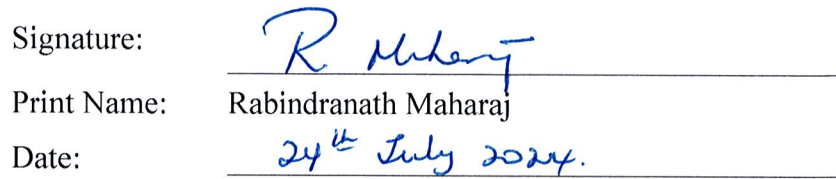 Signature: R Maharaj
Print Name: Rabindranath Maharaj
Date: 24th July 2024.